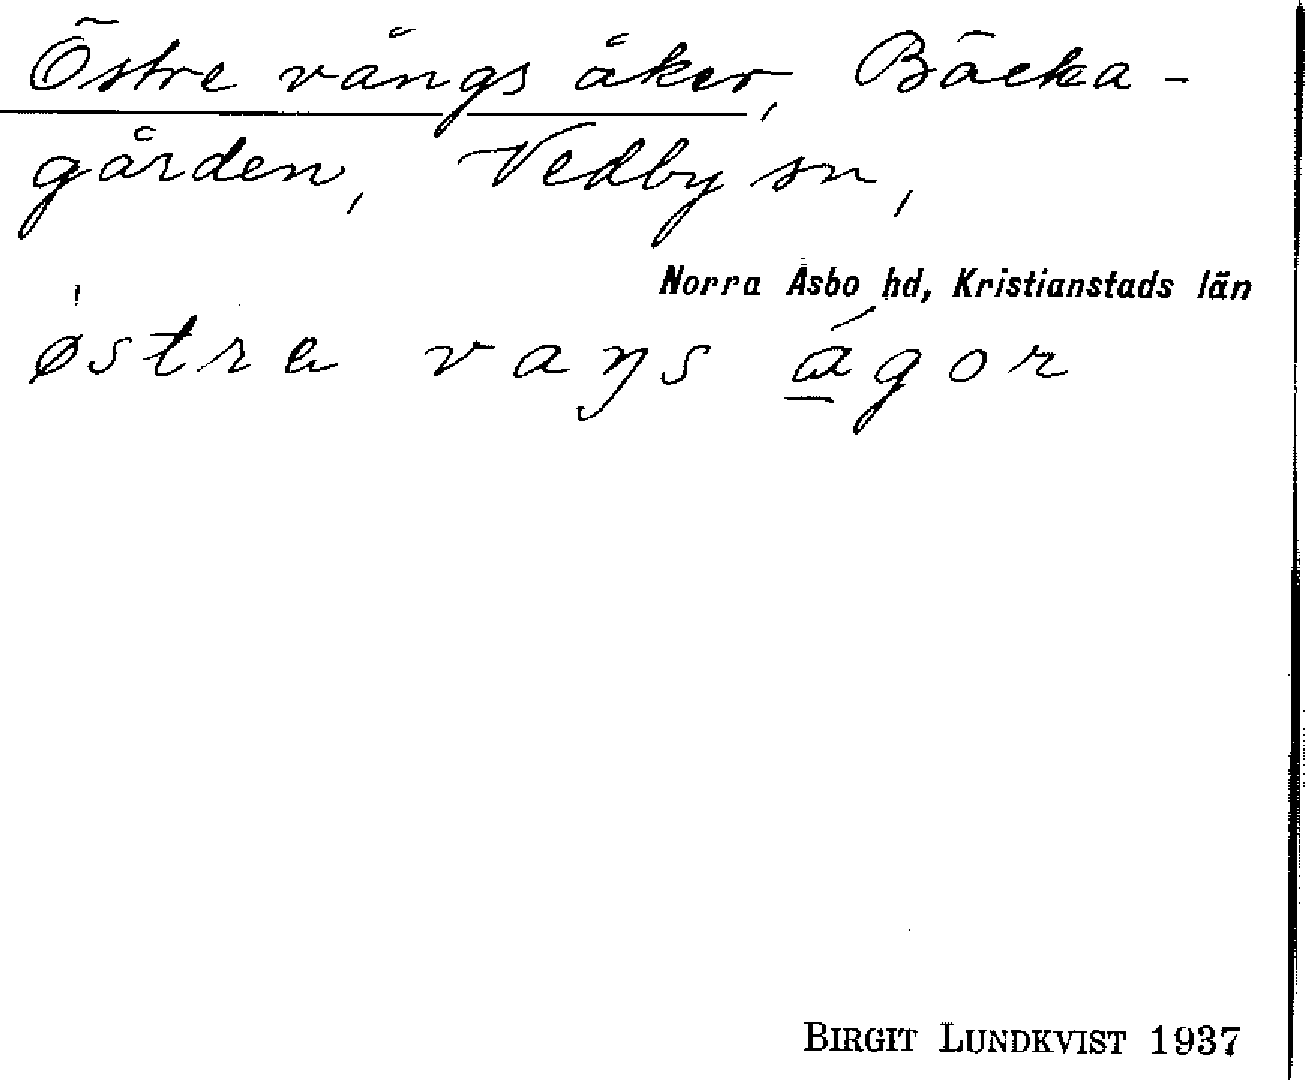 Östre vångs åker, Bäcka-
gården, Vedby sn,
Norra Åsbo hd, Kristianstads län
østra vaŋs ágor
BIRGIT LUNDKVIST 1937